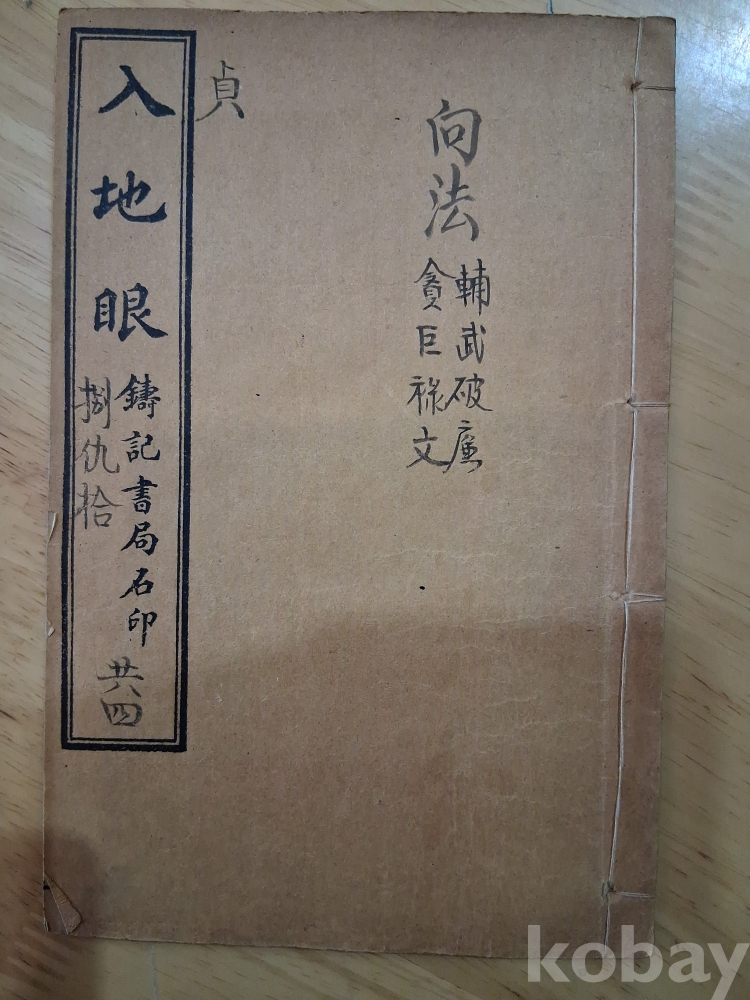 向法
輔武破廉
貪巨祿文
貞
入地眼
鑄記書局石印
捌仇拾
共四
kobay